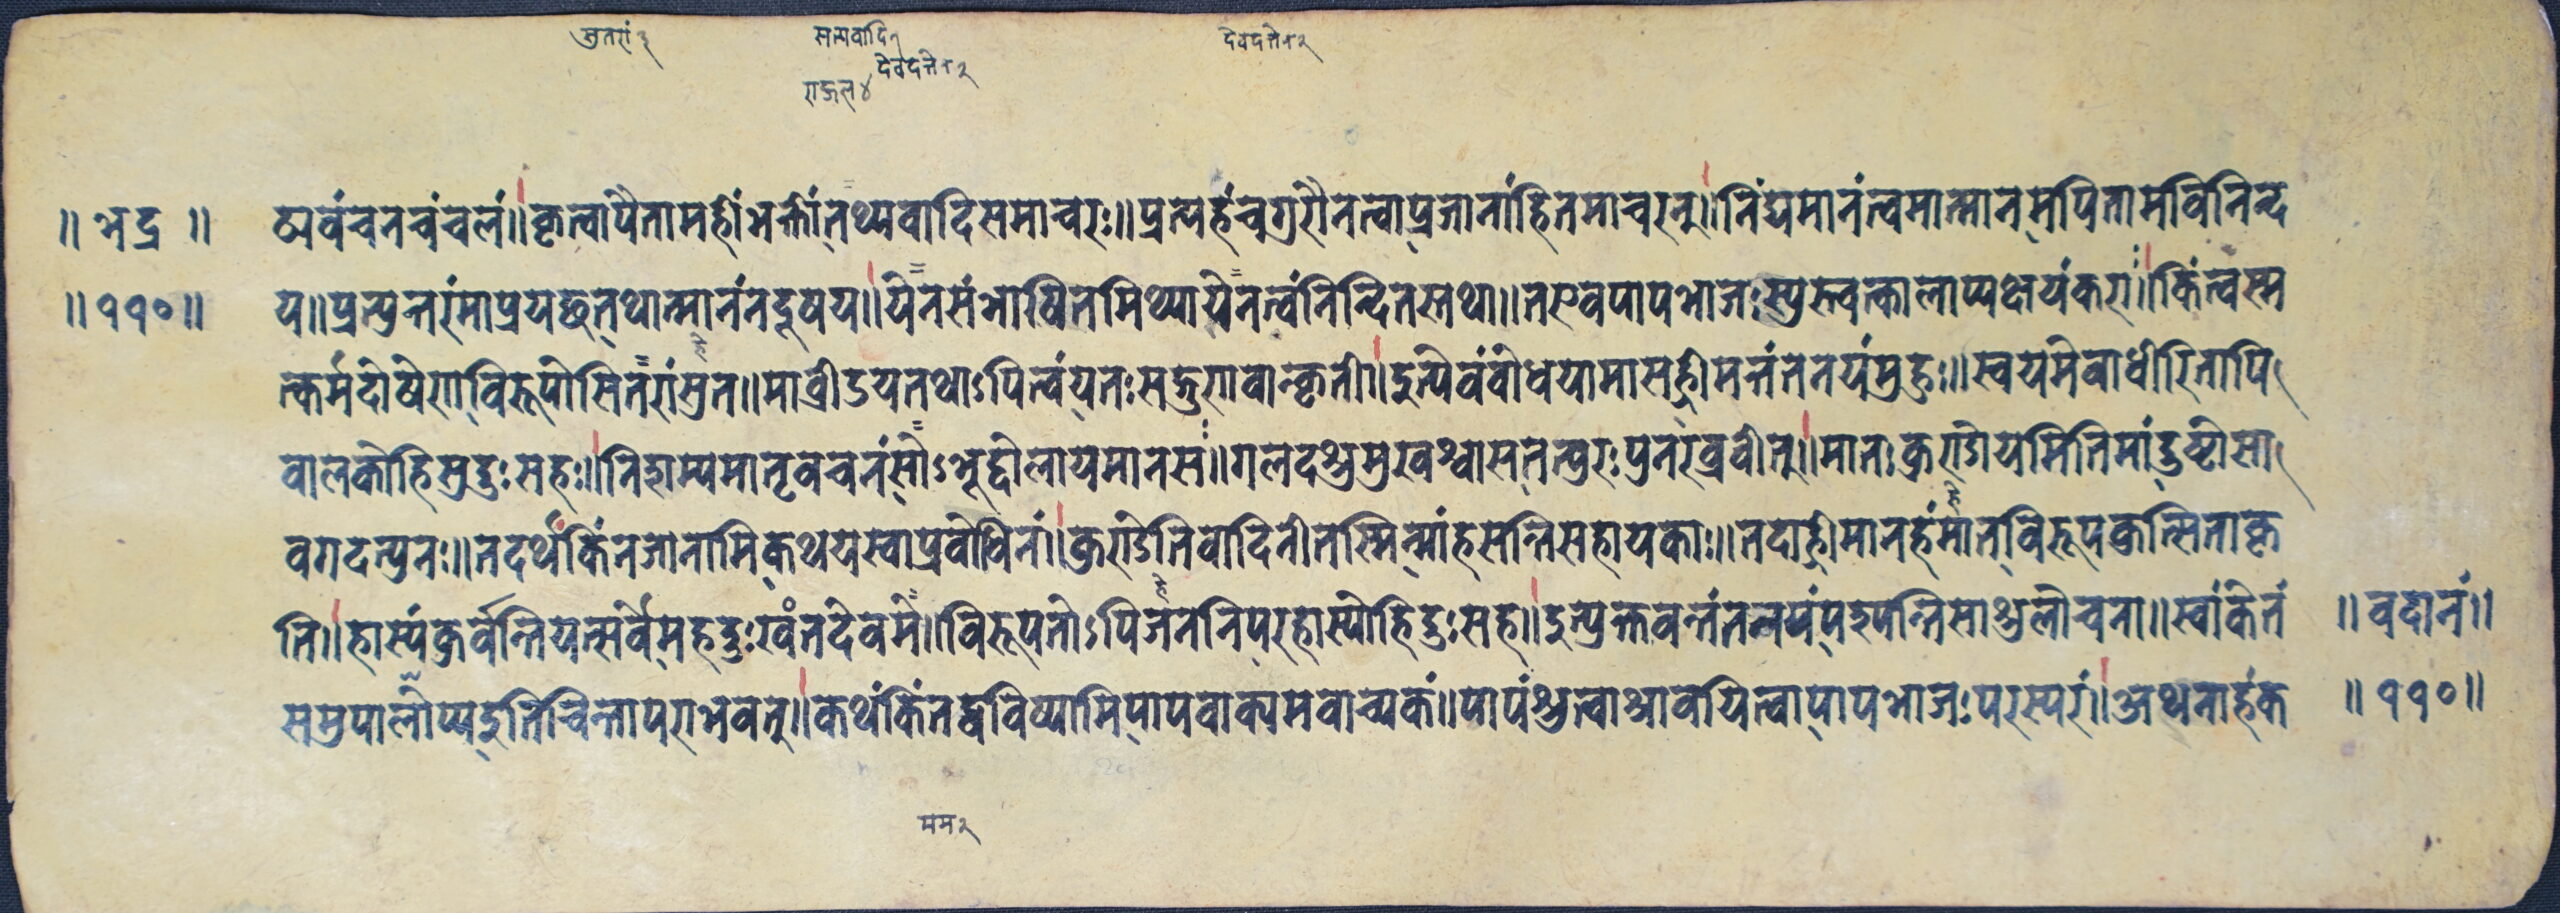 सुतरां ३
सत्यवादि १
देवदत्तेन २
देवदत्तेन २
राजल ४
॥ भद्र ॥
ठ्यवंचनचंचलं॥कृत्वापैतामहींभक्तींतथ्यवादिसमाचरः॥प्रत्यहंचगुरौनत्वाप्रजानांहितमाचरन्॥निंद्यमानंत्वमात्मानमपितामविनिन्द
॥११०॥
य॥प्रत्युत्तरंमाप्रयच्छतथात्मानंनदूषय॥येनसंभाषितमिथ्यायेनत्वंनिन्दितस्तथा॥तएवपापभाजःस्युस्त्वत्कालाप्यक्षयंकराः॥किंत्वस्म
त्कर्मदोषेणविरूपोसितरांसुत॥माव्रीडयतथाऽपित्वंयतःसद्गुणवान्कृती॥इत्येवंबोधयामासह्रीमन्तंतनयंमुहुः॥स्वयमेवाधीरितापि
बालकोहिसुदुःसहः॥निशम्यमातृवचनंसोऽभूद्दोलायमानसः॥गलदश्रुमुखश्वासतत्पुरःपुनरब्रवीत्॥मातःकुणडोयमितिमांदुष्टासा
वगदत्पुनः॥तदर्थंकिंनजानामिकथयस्वाप्रबोधिनां॥कुणडेतिवादिनीतस्मिन्मांहसन्तिसहायकाः॥तदाह्रीमानहंमातविरूपकुत्सिताकृ
ति॥हास्यंकुर्वन्तियत्सर्वेमहद्दुःखंतदेवमे॥विरूपतोऽपिजननिपरहास्योहिदुःसहा॥इत्युक्तवन्तंतनयंपश्यन्तिसाश्रुलोचना॥स्वांकेतं
॥वदानं॥
समुपालोप्यइतिचिन्तापराभवत्॥कथंकिंतद्वविष्यामिपापवाक्यमवाच्यकं॥पापंश्रुत्वाश्रावयित्वापापभाजःपरस्परं॥अथनाहंक
॥११०॥
मम २